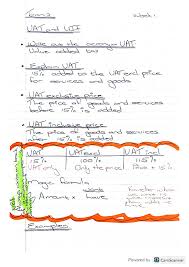 Term 2
Week 1
VAT and UIF
• Write out the acronym VAT
Value added tax
• Explain VAT
15% is added to the VAT excl price
for services and goods
• VAT exclusive price
The price of goods and services
before 15% is added
• VAT inclusive price
The price of goods and services
after 15% is added
VAT
VAT excl
VAT incl
15%
100%
115%
VAT only
Only the price
Price + 15%
Magic formula
Amount x
want
have
Examples
Powered by CamScanner